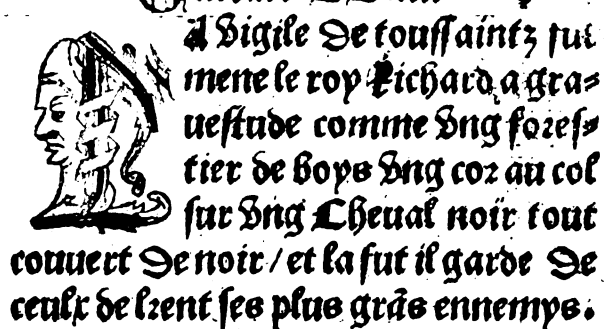 LA vigile De toussaintz fut
mene le roy Richard a gra=
uestude comme Vng fores=
tier de boys Vng cor au col
sur Vng Cheual noir tout
couuert De noir / et la fut il garde De
ceulx de lrent ses plus grãs ennemys.